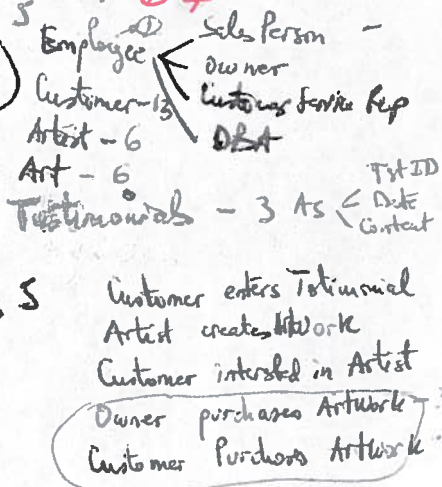 5
Employee ① Sales Person -
Owner
Customer Service Rep
DBA
Customer - 13
Artist - 6
Art - 6
Testimonials - 3 As Tst ID
Date
Content
5 Customer enters Tstimonial
Artist creates ArtWork
Customer intersted in Artist
Owner purchases ArtWork
Customer Purchases ArtWork